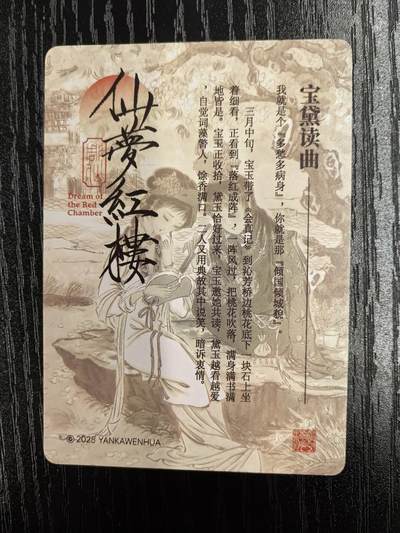 宝黛读曲
我就是个『多愁多病身』，你就是那『倾国倾城貌』。
三月中旬，宝玉带了《会真记》到沁芳桥边桃花底下一块石上坐
着细看，正看到『落红成阵』，一阵风过，把桃花吹落，满身满书满
地皆是。宝玉正收拾，黛玉恰好过来，宝玉邀她共读，黛玉越看越爱
，自觉词藻警人，馀香满口。二人又用典故其中说笑，暗诉衷情。
仙夢紅樓
Dream of
the Red
Chamber
© 2025 YANKAWENHUA